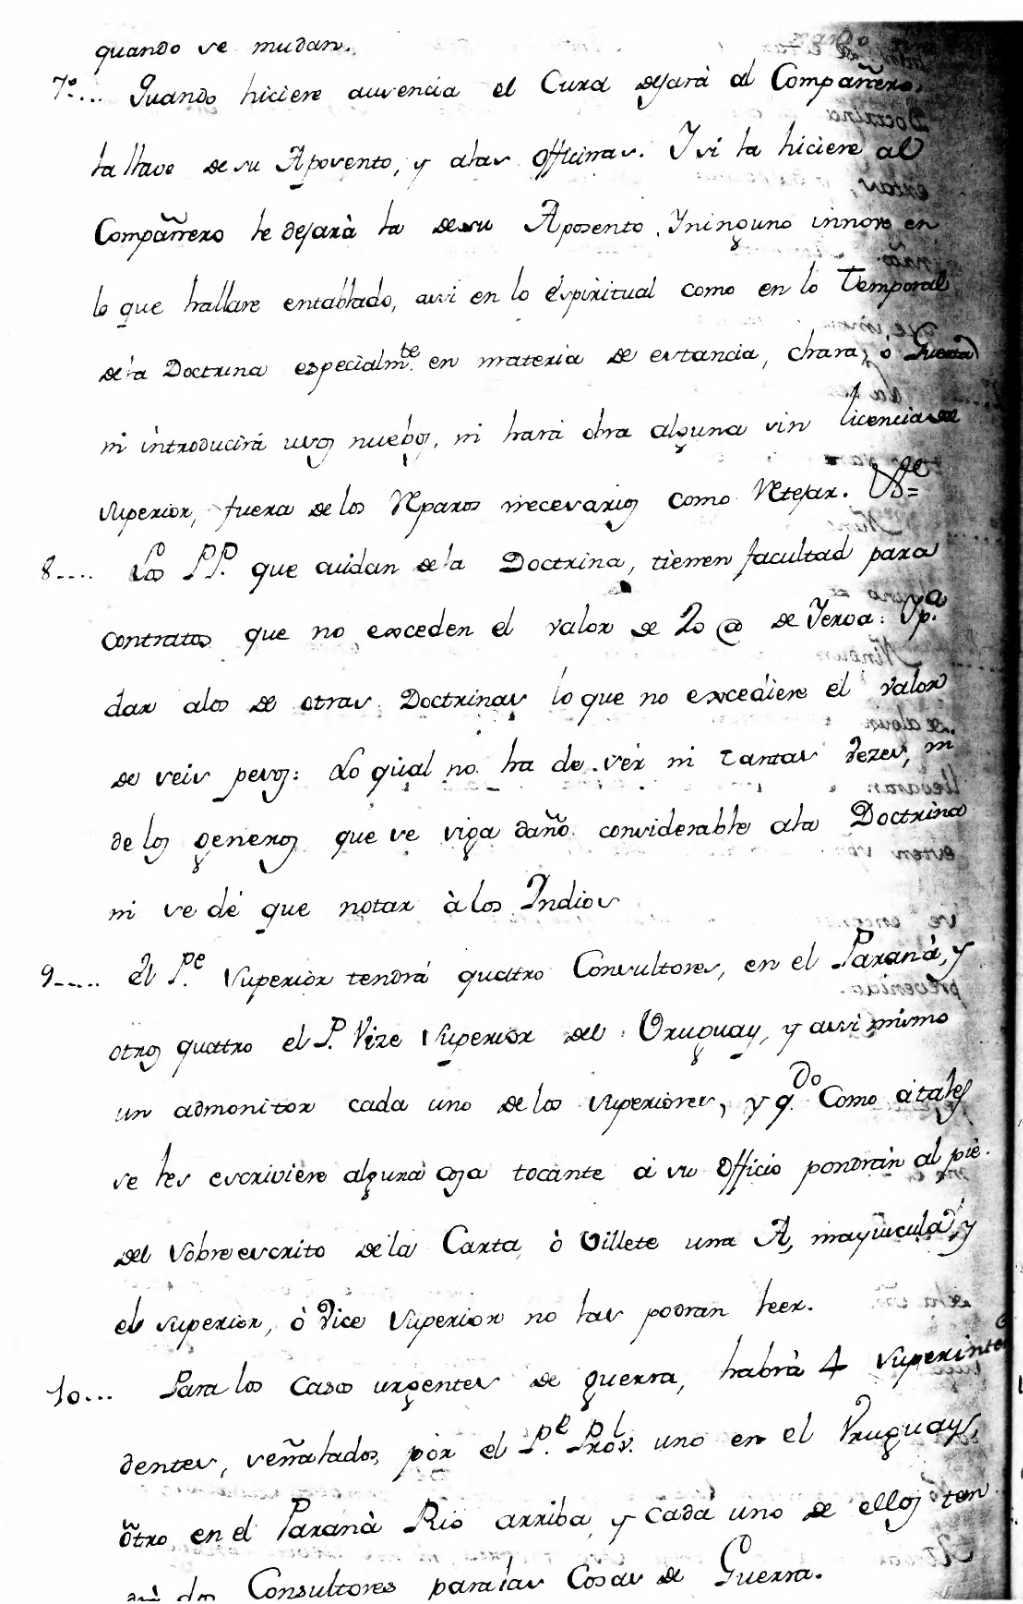 quando se mudan.
7º... Quando hiciere ausencia el Cura dejarà al Compañero,
la llave de su Aposento, y alas officinas. Y si la hiciere al
Compañero le dejarà la de su Aposento. Y ninguno innove en
lo que hallare entablado, assi en lo Espiritual como en lo Temporal
de la Doctrina especialmte. en materia de estancia, chara, ò Guerra
ni introducirá usos nuebos, ni hará obra alguna sin licencia del
superior, fuera de los Reparos necesarios como Retejar. &
8.... Los PP. que cuidan de la Doctrina, tienen facultad para
contratos que no exceden el valor de 20 @ de Yerva: Y pa.
dar alos de otras Doctrinas lo que no excediere el valor
de seis pesos: Lo qual no ha de ser ni tantas vezes, ni
de los generos que se siga daño considerable ala Doctrina
ni se dé que notar à los Indios
9..... El Pe. Superior tendrá quattro Consultores, en el Paranà, y
otros quattro el P. Vize Superior del Uruguay, y assi mismo
un admonitor cada uno de los superiores, y qdo. Como à tales
se les escriviere alguna cosa tocante à su Officio pondràn al piè
del sobreescrito de la Carta, ò Villete una A, mayuscula, y
el superior, ò Vice Superior no las podran leer.
10... Para los casos urgentes de guerra, habrà 4 Superinten
dentes, señalados por el Pe. Prov.l uno en el Uruguay,
òtro en el Paranà Rio arriba, y cada uno de ellos ten
drà dos Consultores para las Cosas de Guerra.